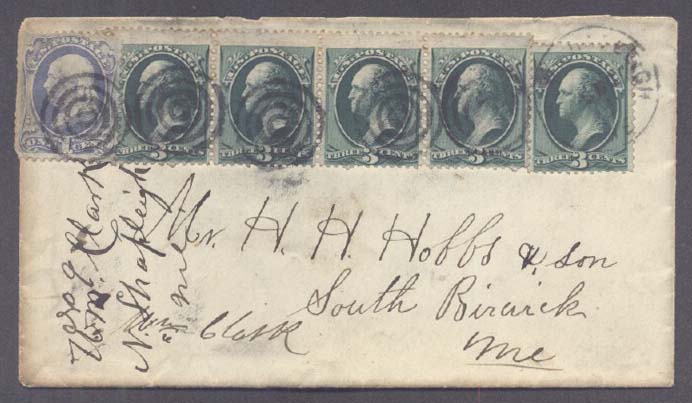 U.S. POSTAGE
ONE 1 CENT
U.S. POSTAGE
THREE 3 CENTS
U.S. POSTAGE
THREE 3 CENTS
U.S. POSTAGE
THREE 3 CENTS
U.S. POSTAGE
THREE 3 CENTS
U.S. POSTAGE
THREE 3 CENTS
Mr. H. H. Hobbs & son
South Birwick
Me
Clark
N. Shapleigh
Me
Clark